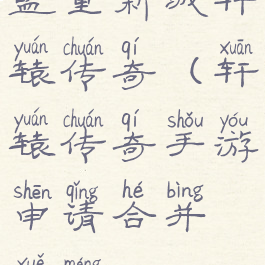 盖重新改轩
yuán chuán qí xuān
辕传奇（轩
yuán chuán qí shǒu yóu
辕传奇手游
shēn qǐng hé bìng
申请合并
xuě méng